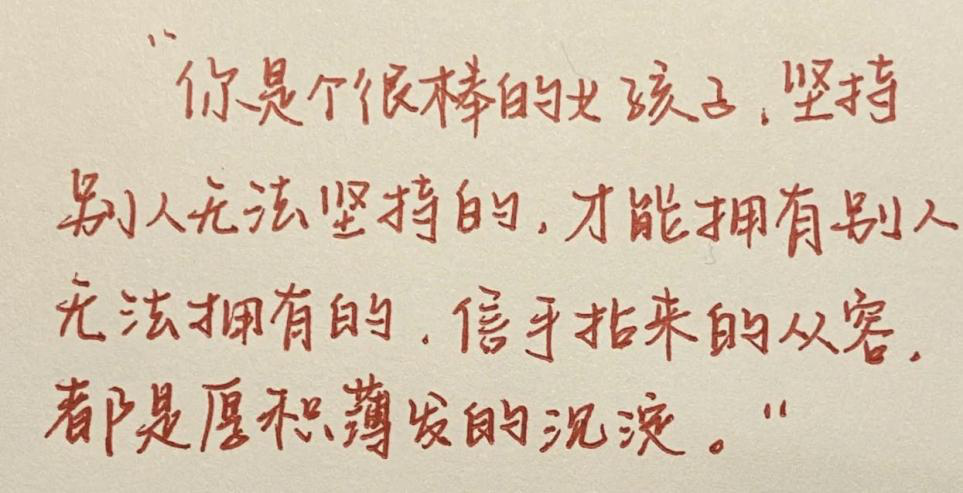 “你是个很棒的女孩子,坚持
别人无法坚持的,才能拥有别人
无法拥有的,信手拈来的从容,
都是厚积薄发的沉淀。”